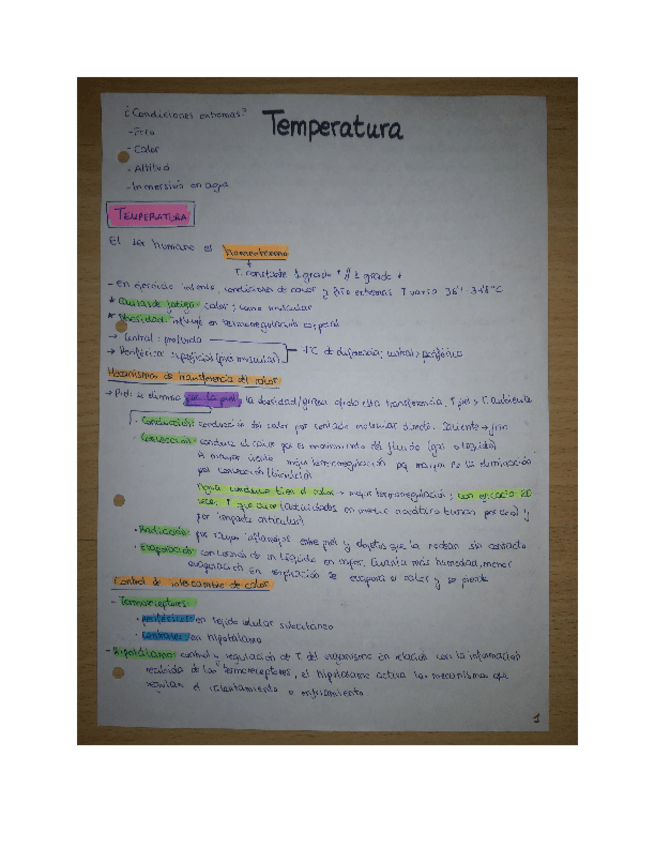 ¿Condiciones extremas?
Temperatura
- Frío
- Calor
- Altitud
- Inmersión en agua
TEMPERATURA
El ser humano es homeotermo
T. constante
- en ejercicio intenso, condiciones de calor y frío extremas T varía
* Causas de fatiga: calor
* Obesidad: influye en termorregulación corporal
→ Central: profunda
→ Periférica: superficial (piel, muscular)
1°C de diferencia; central > periférica
Mecanismos de transferencia del calor
por la piel, la obesidad/grasa afecta esta transferencia. T piel > T. ambiente
· Conducción: conducción del calor por contacto molecular directo. Caliente → frío
· Convección: conduce el calor por el movimiento del fluido (gas o líquido)
A mayor viento mejor termorregulación pq mayor es la eliminación
por convección (bicicleta)
Agua conduce bien el calor → mejor termorregulación;
por impacto articular)
· Radiación: por rayos infrarrojos entre piel y objetos que la rodean sin contacto
· Evaporación: conversión de un líquido en vapor. Cuanta más humedad, menor
evaporación. En respiración se evapora el calor y se pierde
Control de intercambio de calor
- Termorreceptores:
· periféricos: en tejido celular subcutáneo
· centrales: en hipotálamo
- Hipotálamo: control y regulación de T del organismo en relación con la información
recibida de los termorreceptores, el hipotálamo activa los mecanismos que
regulan el calentamiento o enfriamiento
1